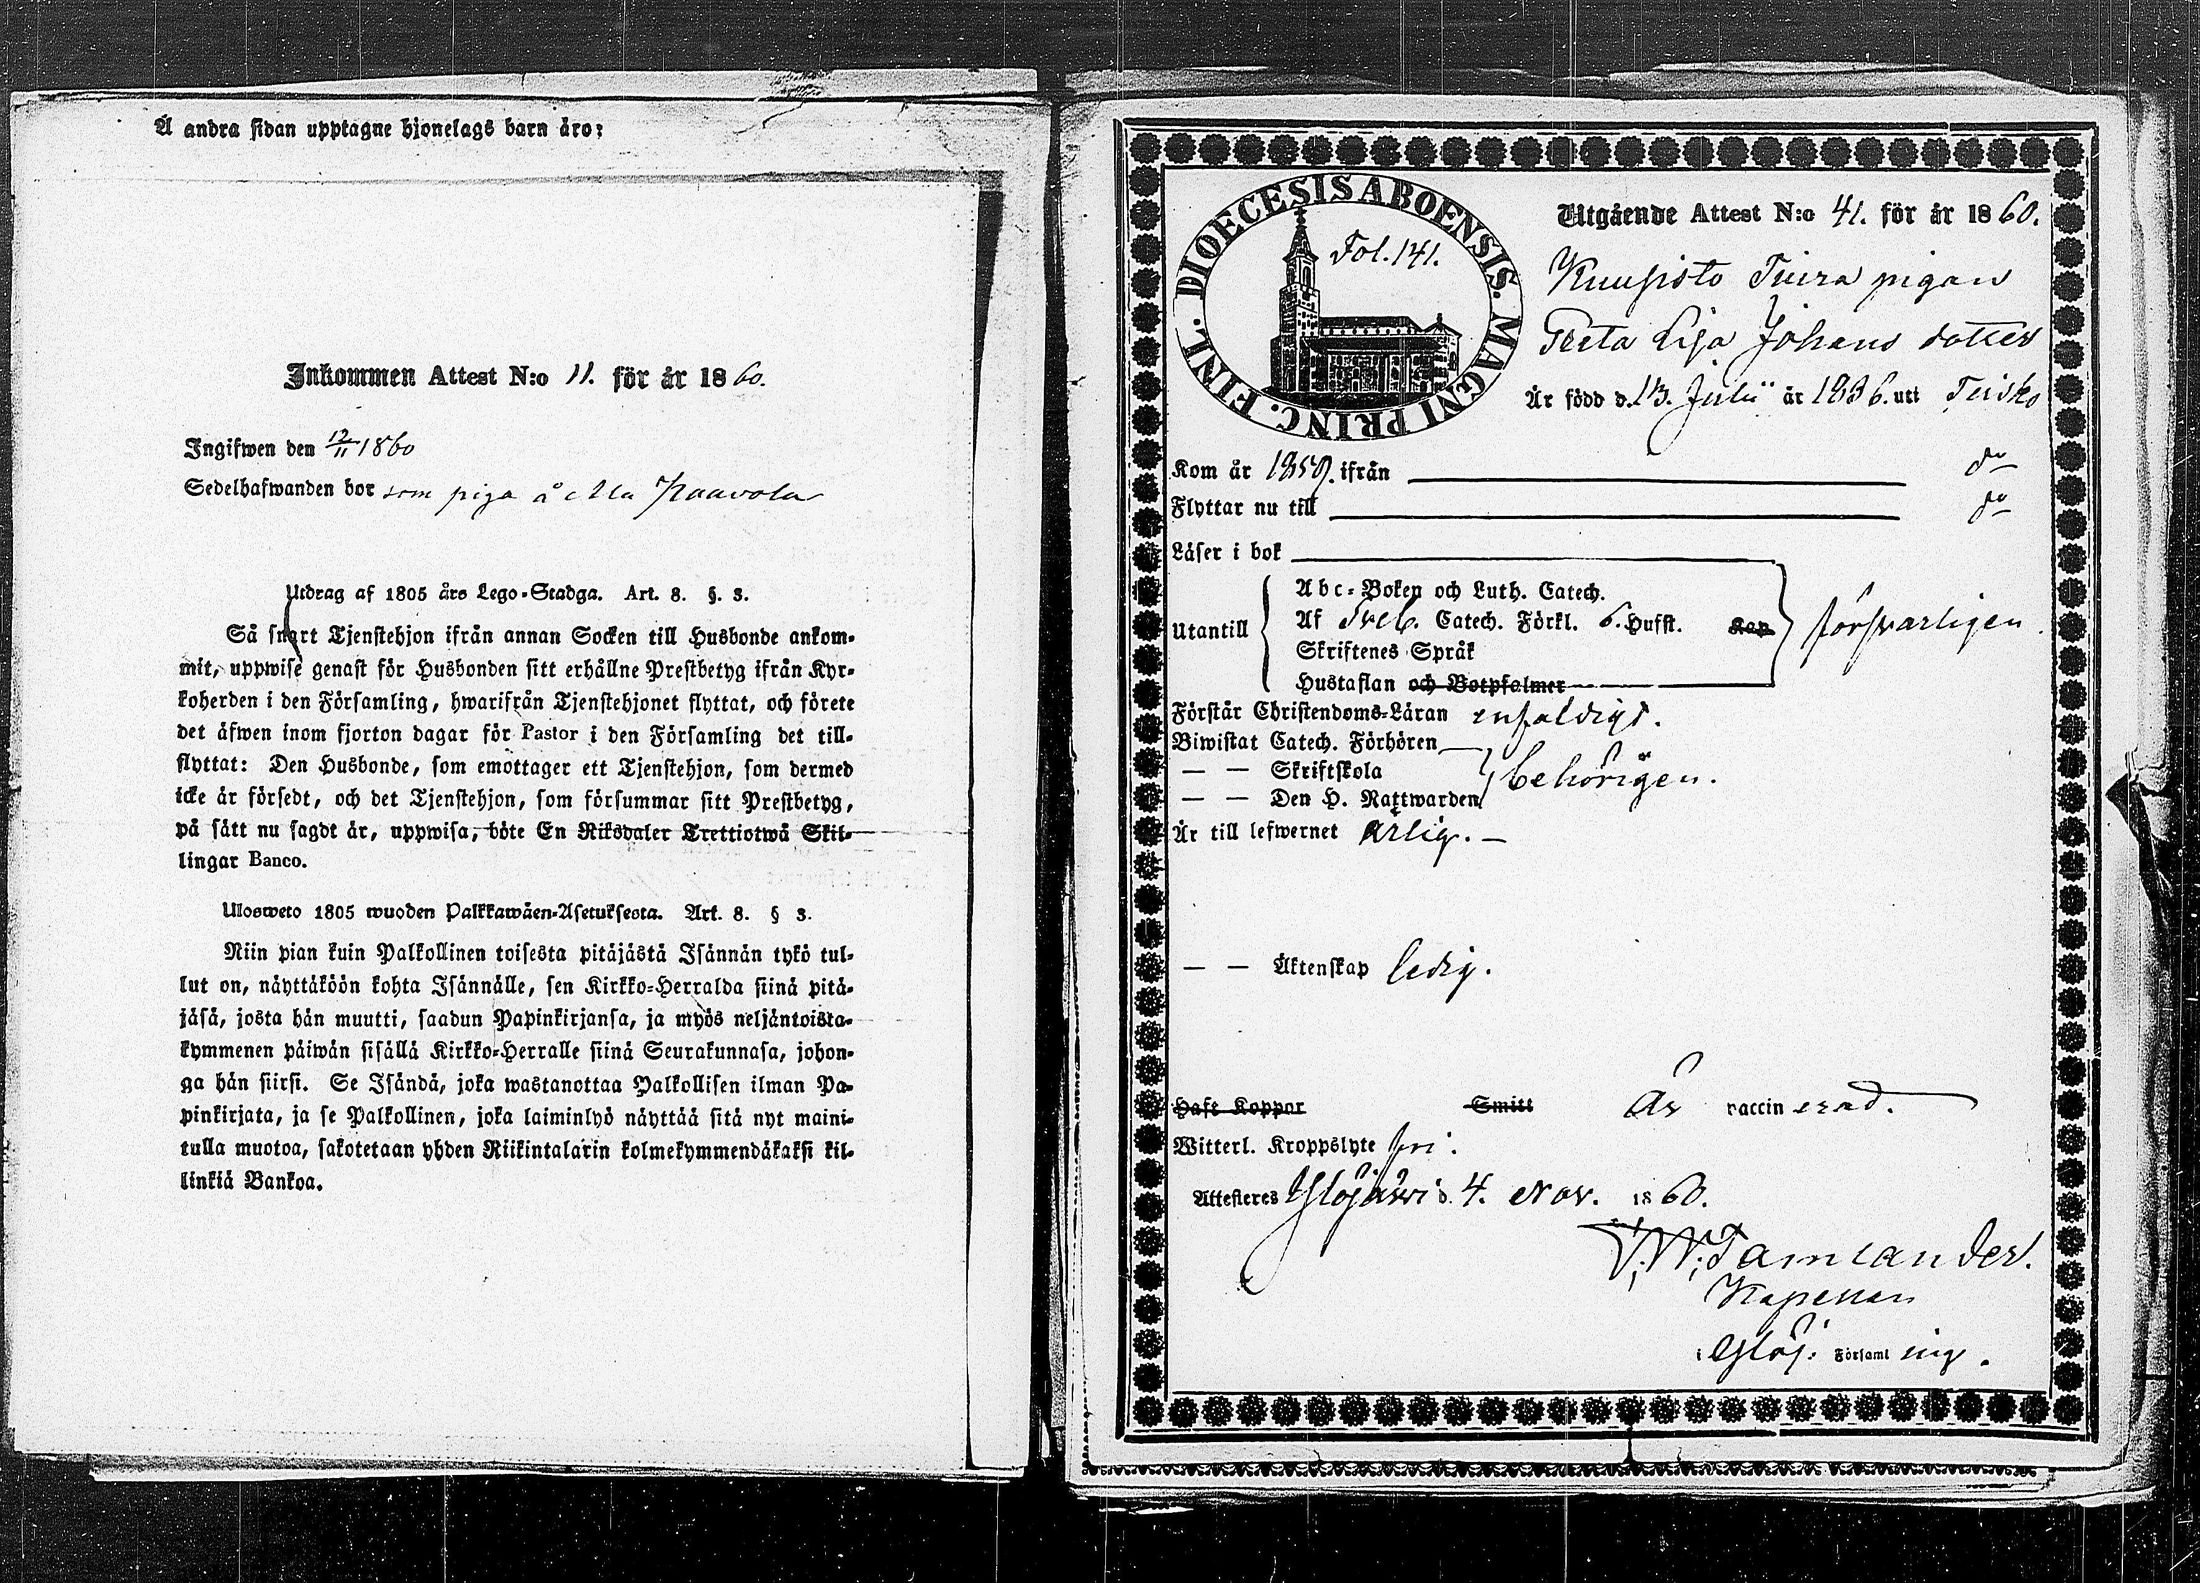 Å andra sidan upptagne hjonelags barn äro:
Inkommen Attest N:o 11. för år 1860.
Ingifwen den 12/11 1860
Sedelhafwanden bor som piga å Ala Paavola
Utdrag af 1805 års Lego-Stadga. Art. 8. §. 3.
Så snart Tjenstehjon ifrån annan Socken till Husbonde ankom-
mit, uppwise genast för Husbonden sitt erhållne Prestbetyg ifrån Kyr-
koherden i den Församling, hwarifrån Tjenstehjonet flyttat, och förete
det äfwen inom fjorton dagar för Pastor i den Församling det till-
flyttat: Den Husbonde, som emottager ett Tjenstehjon, som dermed
icke är försedt, och det Tjenstehjon, som försummar sitt Prestbetyg,
på sätt nu sagdt är, uppwisa, böte En Riksdaler Trettiotwå Skil-
lingar Banco.
Ulosweto 1805 wuoden Palkkawäen-Asetuksesta. Art. 8. § 3.
Niin pian kuin Palkollinen toisesta pitäjästä Isännän tykö tul-
lut on, näyttäköön kohta Isännälle, sen Kirkko-Herralda siinä pitä-
jäsä, josta hän muutti, saadun Papinkirjansa, ja myös neljäntoista-
kymmenen päiwän sisällä Kirkko-Herralle siinä Seurakunnasa, johon-
ga hän siirsi. Se Isändä, joka wastanottaa Palkollisen ilman Pa-
pinkirjata, ja se Palkollinen, joka laiminlyö näyttää sitä nyt maini-
tulla muotoa, sakotetaan yhden Riikintalarin kolmekymmendäkaksi kil-
linkiä Bankoa.
DIOECESIS ABOENSIS. MAGNI PRINC. FINL.
Fol. 141.
Utgående Attest N:o 41. för år 1860.
Kuusisto Tiura pigan
Greta Lisa Johans dotter
Är född d. 13. Julii år 1836. uti Teisko
Kom år 1859. ifrån do
Flyttar nu till do
Läser i bok
Utantill
Abc-Boken och Luth. Catech.
Af Sveb. Catech. Förkl. 6. Hufst. Kap
Skriftenes Språk
Hustaflan och Botpsalmer
försvarligen.
Förstår Christendoms-Läran enfaldigt.
Biwistat Catech. Förhören
— — Skriftskola
— — Den H. Nattwarden
behörigen.
Är till lefwernet ärlig. —
— — Äktenskap ledig.
Haft Koppor Smitt Är vaccinerad.
Witterl. Kroppslyte fri.
Attesteres Ylöjärvi d. 4. Nov. 1860.
W. Tamlander.
Kapellan
i Ylöj. Församling.